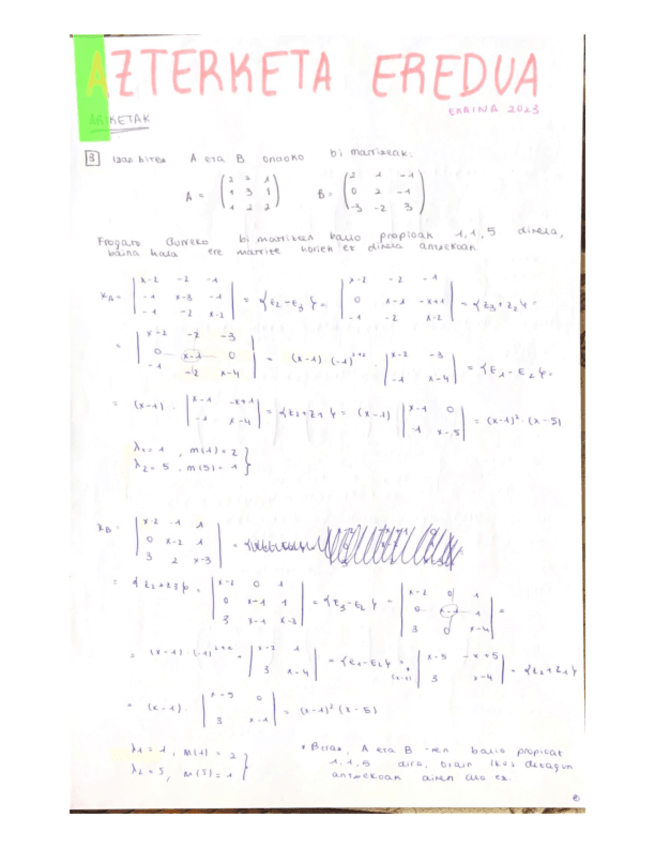 AZTERKETA EREDUA
EKAINA 2023
ARIKETAK
3 Izan bitez A eta B ondoko bi matrizeak:
A = ( 2 2 1 ; 1 3 1 ; 1 2 2 ) B = ( 2 1 -1 ; 0 2 -1 ; -3 -2 3 )
Frogatu aurreko bi matrizeen balio propioak 1, 1, 5 direla,
baina hala ere matrize horiek ez direla antzekoak.
χA = | x-2 -2 -1 ; -1 x-3 -1 ; -1 -2 x-2 | = {E2-E3} = | x-2 -2 -1 ; 0 x-1 -x+1 ; -1 -2 x-2 | = {Z3+Z2} =
= | x-2 -2 -3 ; 0 x-1 0 ; -1 -2 x-4 | = (x-1)·(-1)^2+2 · | x-2 -3 ; -1 x-4 | = {E1-E2} =
= (x-1) · | x-1 -x+1 ; -1 x-4 | = {Z2+Z1} = (x-1) | x-1 0 ; -1 x-5 | = (x-1)² · (x-5)
λ1 = 1 , m(1) = 2
λ2 = 5 , m(5) = 1 }
χB = | x-2 -1 1 ; 0 x-2 1 ; 3 2 x-3 | =
= {Z2+Z3} = | x-2 0 1 ; 0 x-1 1 ; 3 x-1 x-3 | = {E3-E2} = | x-2 0 1 ; 0 x-1 1 ; 3 0 x-4 | =
= (x-1)·(-1)^2+2 · | x-2 1 ; 3 x-4 | = {E1-E2} = (x-1) | x-5 -x+5 ; 3 x-4 | = {Z2+Z1}
= (x-1) · | x-5 0 ; 3 x-1 | = (x-1)² (x-5)
λ1 = 1 , m(1) = 2
λ2 = 5, m(5) = 1 }
* Beraz, A eta B -ren balio propioak
1, 1, 5 dira, orain ikus dezagun
antzekoak diren ala ez.